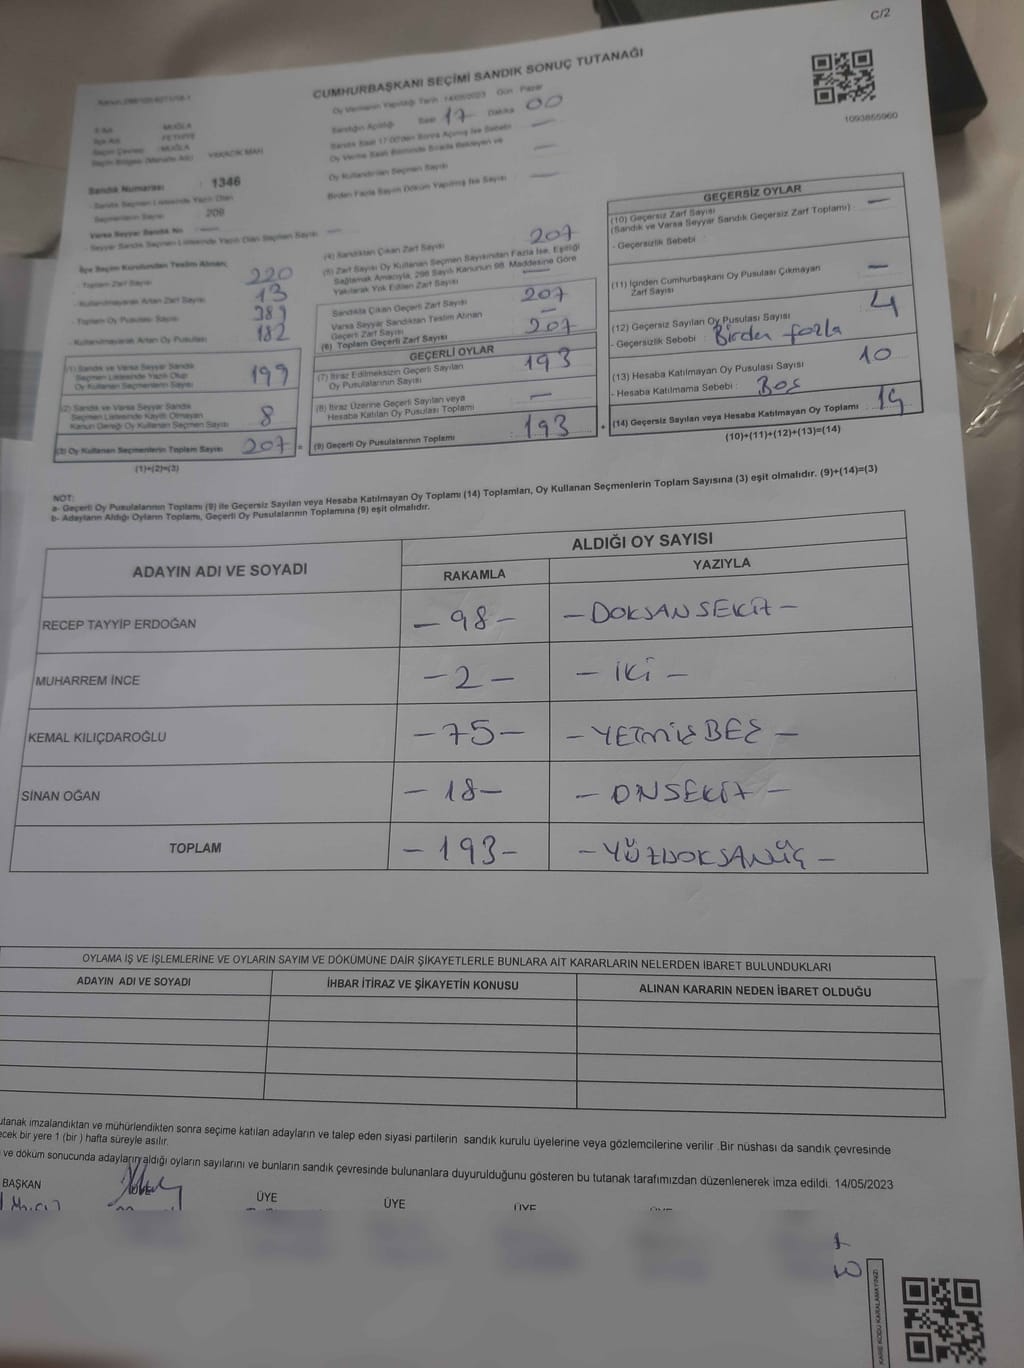 C/2
CUMHURBAŞKANI SEÇİMİ SANDIK SONUÇ TUTANAĞI
Oy Vermenin Yapıldığı Tarih : 14/05/2023 Gün : Pazar
Sandığın Açıldığı Saat 17 Dakika 00
Sandık Saat 17:00'den Sonra Açılmış İse Sebebi
Oy Verme Saati Bitiminde Sırada Bekleyen ve
Oy Kullandırılan Seçmen Sayısı
Birden Fazla Sayım Döküm Yapılmış İse Sayısı
1093855960
İli Adı : MUĞLA
İlçe Adı : FETHİYE
Seçim Çevresi : MUĞLA
Seçim Bölgesi (Mahalle Adı) :
Sandık Numarası : 1346
- Sandık Seçmen Listesinde Yazılı Olan
Seçmenlerin Sayısı : 209
Varsa Seyyar Sandık No
- Seyyar Sandık Seçmen Listesinde Yazılı Olan Seçmen Sayısı
İlçe Seçim Kurulundan Teslim Alınan;
- Toplam Zarf Sayısı 220
- Kullanılmayarak Artan Zarf Sayısı 13
- Toplam Oy Pusulası Sayısı 389
- Kullanılmayarak Artan Oy Pusulası 182
(1) Sandık ve Varsa Seyyar Sandık
Seçmen Listesinde Yazılı Olup
Oy Kullanan Seçmenlerin Sayısı 199
(2) Sandık ve Varsa Seyyar Sandık
Seçmen Listesinde Kayıtlı Olmayan
Kanun Gereği Oy Kullanan Seçmen Sayısı 8
(3) Oy Kullanan Seçmenlerin Toplam Sayısı 207
(1)+(2)=(3)
(4) Sandıktan Çıkan Zarf Sayısı 207
(5) Zarf Sayısı Oy Kullanan Seçmen Sayısından Fazla İse, Eşitliği
Sağlamak Amacıyla, 298 Sayılı Kanunun 98. Maddesine Göre
Yakılarak Yok Edilen Zarf Sayısı
Sandıkta Çıkan Geçerli Zarf Sayısı 207
Varsa Seyyar Sandıktan Teslim Alınan
Geçerli Zarf Sayısı –
(6) Toplam Geçerli Zarf Sayısı 207
GEÇERLİ OYLAR
(7) İtiraz Edilmeksizin Geçerli Sayılan
Oy Pusulalarının Sayısı 193
(8) İtiraz Üzerine Geçerli Sayılan veya
Hesaba Katılan Oy Pusulası Toplamı –
(9) Geçerli Oy Pusulalarının Toplamı 193
GEÇERSİZ OYLAR
(10) Geçersiz Zarf Sayısı –
(Sandık ve Varsa Seyyar Sandık Geçersiz Zarf Toplamı)
- Geçersizlik Sebebi :
(11) İçinden Cumhurbaşkanı Oy Pusulası Çıkmayan
Zarf Sayısı –
(12) Geçersiz Sayılan Oy Pusulası Sayısı 4
- Geçersizlik Sebebi : Birden fazla
(13) Hesaba Katılmayan Oy Pusulası Sayısı 10
- Hesaba Katılmama Sebebi : Boş
(14) Geçersiz Sayılan veya Hesaba Katılmayan Oy Toplamı 14
(10)+(11)+(12)+(13)=(14)
NOT:
a- Geçerli Oy Pusulalarının Toplamı (9) ile Geçersiz Sayılan veya Hesaba Katılmayan Oy Toplamı (14) Toplamları, Oy Kullanan Seçmenlerin Toplam Sayısına (3) eşit olmalıdır. (9)+(14)=(3)
b- Adayların Aldığı Oyların Toplamı, Geçerli Oy Pusulalarının Toplamına (9) eşit olmalıdır.
ADAYIN ADI VE SOYADI
ALDIĞI OY SAYISI
RAKAMLA YAZIYLA
RECEP TAYYİP ERDOĞAN – 98 – – DOKSAN SEKİZ –
MUHARREM İNCE – 2 – – İKİ –
KEMAL KILIÇDAROĞLU – 75 – – YETMİŞ BEŞ –
SİNAN OĞAN – 18 – – ONSEKİZ –
TOPLAM – 193 – – YÜZDOKSANÜÇ –
OYLAMA İŞ VE İŞLEMLERİNE VE OYLARIN SAYIM VE DÖKÜMÜNE DAİR ŞİKAYETLERLE BUNLARA AİT KARARLARIN NELERDEN İBARET BULUNDUKLARI
ADAYIN ADI VE SOYADI İHBAR İTİRAZ VE ŞİKAYETİN KONUSU ALINAN KARARIN NEDEN İBARET OLDUĞU
utanak imzalandıktan ve mühürlendikten sonra seçime katılan adayların ve talep eden siyasi partilerin sandık kurulu üyelerine veya gözlemcilerine verilir .Bir nüshası da sandık çevresinde
ecek bir yere 1 (bir ) hafta süreyle asılır.
ve döküm sonucunda adayların aldığı oyların sayılarını ve bunların sandık çevresinde bulunanlara duyurulduğunu gösteren bu tutanak tarafımızdan düzenlenerek imza edildi. 14/05/2023
BAŞKAN ÜYE ÜYE ÜYE
KARE KODU KARALAMAYINIZ!